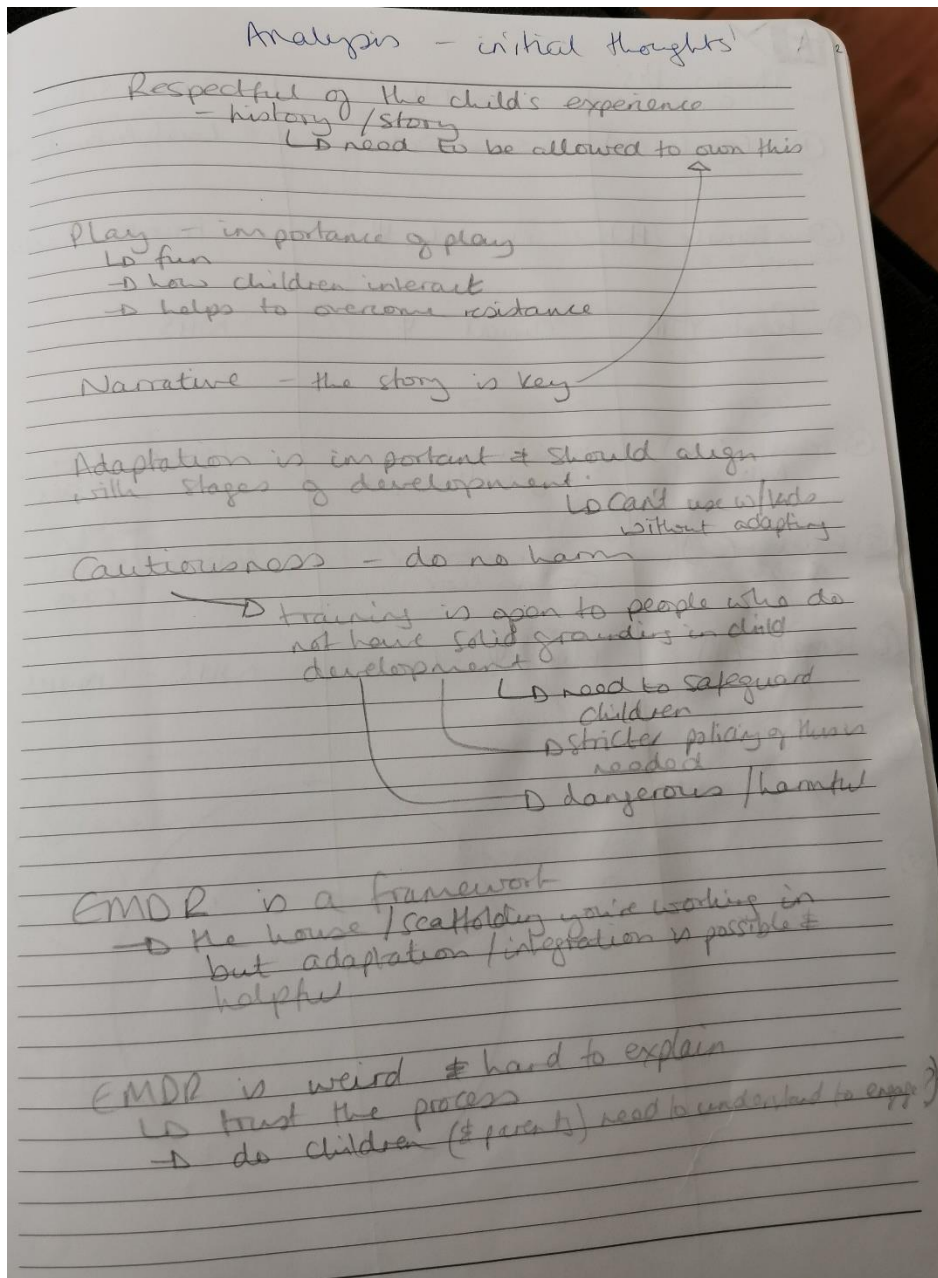 Analysis - initial thoughts
Respectful of the child's experience
- history / story
↳ need to be allowed to own this
Play - importance of play
↳ fun
→ how children interact
→ helps to overcome resistance
Narrative - the story is key
Adaptation is important & should align
with stages of development.
↳ Can't use w/kids
without adapting
Cautiousness - do no harm
→ training is open to people who do
not have solid grounding in child
development
↳ need to safeguard
children
→ stricter policing of this is
needed
→ dangerous / harmful
EMDR is a framework
→ the house / scaffolding you're working in
but adaptation / integration is possible &
helpful
EMDR is weird & hard to explain
↳ trust the process
→ do children (& parents) need to understand to engage?
2